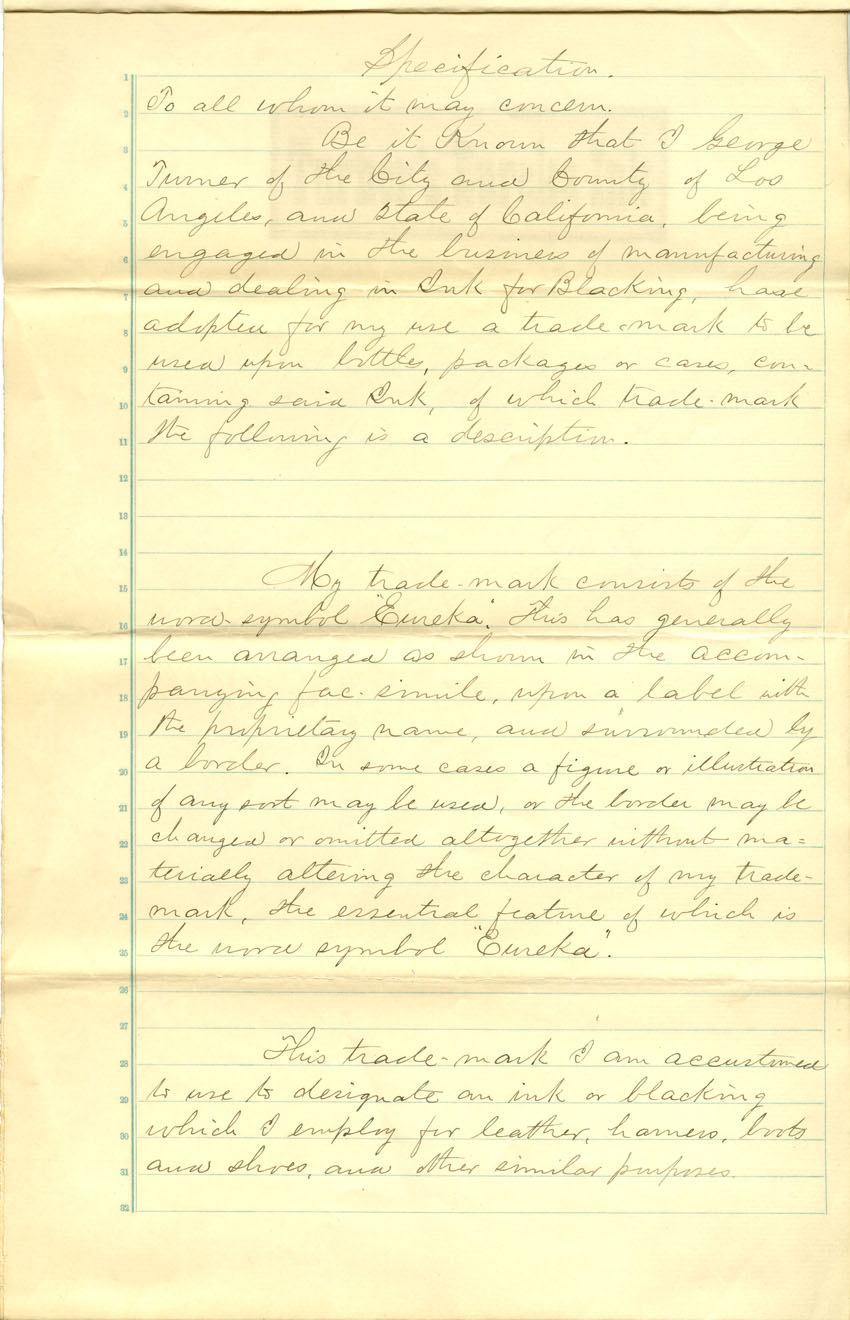 Specification.
1
To all whom it may concern.
2
Be it Known that I George
3
Turner of the City and County of Los
4
Angeles, and State of California, being
5
engaged in the business of manufacturing
6
and dealing in Ink for Blacking, have
7
adopted for my use a trade-mark to be
8
used upon bottles, packages or cases, con-
9
taining said Ink, of which trade-mark
10
the following is a description.
11
12
13
14
My trade-mark consists of the
15
word-symbol "Eureka". This has generally
16
been arranged as shown in the accom-
17
panying fac-simile, upon a label with
18
the proprietary name, and surrounded by
19
a border. In some cases a figure or illustration
20
of any sort may be used, or the border may be
21
changed or omitted altogether without ma=
22
terially altering the character of my trade-
23
mark, the essential feature of which is
24
the word symbol "Eureka".
25
26
27
This trade-mark I am accustomed
28
to use to designate an ink or blacking
29
which I employ for leather, harness, boots
30
and shoes, and other similar purposes.
31
32